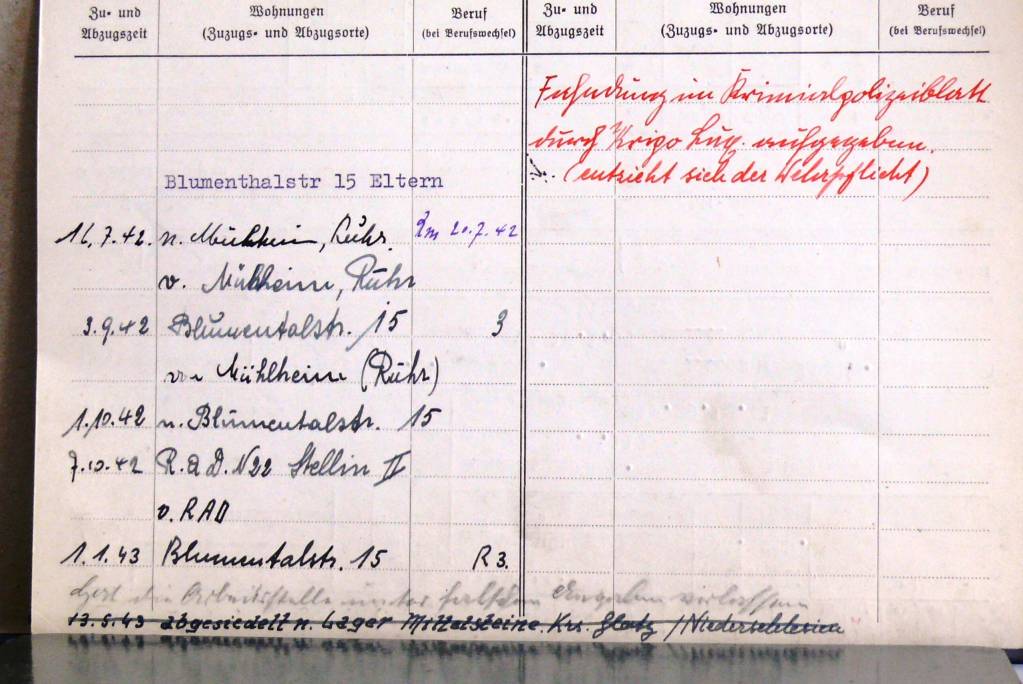 Zu- und Abzugszeit
Wohnungen (Zuzugs- und Abzugsorte)
Beruf (bei Berufswechsel)
Zu- und Abzugszeit
Wohnungen (Zuzugs- und Abzugsorte)
Beruf (bei Berufswechsel)
Fahndung im Kriminalpolizeiblatt
durch Kripo Lux. aufgegeben.
(entzieht sich der Wehrpflicht)
Blumenthalstr 15 Eltern
7.42. n. Mülheim, Ruhr. 20.7.42
v. Mülheim, Ruhr
3.9.42 Blumentalstr. 15 3
von Mühlheim (Ruhr)
1.10.42 n. Blumentalstr. 15
7.10.42 R.a.D. N22 Stellin II
v. RAD
1.1.43 Blumentalstr. 15 R3.
Hat die Arbeitsstelle unter falschen Angaben verlassen
13.5.43 abgesiedelt n. Lager Mittelsteine Krs. Glatz / Niederschlesien